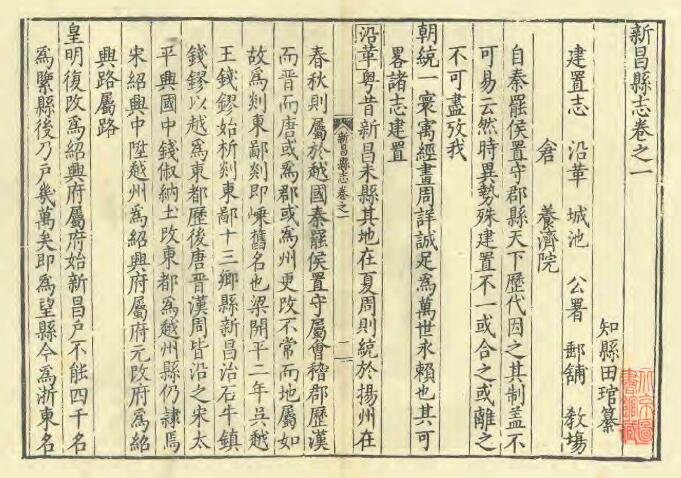 新昌縣志卷之一
知縣田琯纂
建置志　沿革　城池　公署　郵舖　教塲
倉　養濟院
自秦罷侯置守郡縣天下歷代因之其制盖不
可易云然時異勢殊建置不一或合之或離之
不可盡攷我
朝統一寰㝢經畫周詳誠足爲萬世永賴也其可
畧諸志建置
沿革粤昔新昌未縣其地在夏周則統於揚州在
新昌縣志卷之一
一
春秋則屬於越國秦罷侯置守屬會稽郡歷漢
而晋而唐或爲郡或爲州更改不常而地屬如
故爲剡東鄙剡即嵊舊名也梁開平二年吳越
王錢鏐始析剡東鄙十三鄉縣新昌治石牛鎮
錢鏐以越爲東都歷後唐晋漢周皆沿之宋太
平興國中錢俶納土改東都爲越州縣仍隷焉
宋紹興中陞越州爲紹興府屬府元改府爲紹
興路屬路
皇明復改爲紹興府屬府始新昌戶不能四千名
爲緊縣後乃戶幾萬矣即爲望縣今爲浙東名